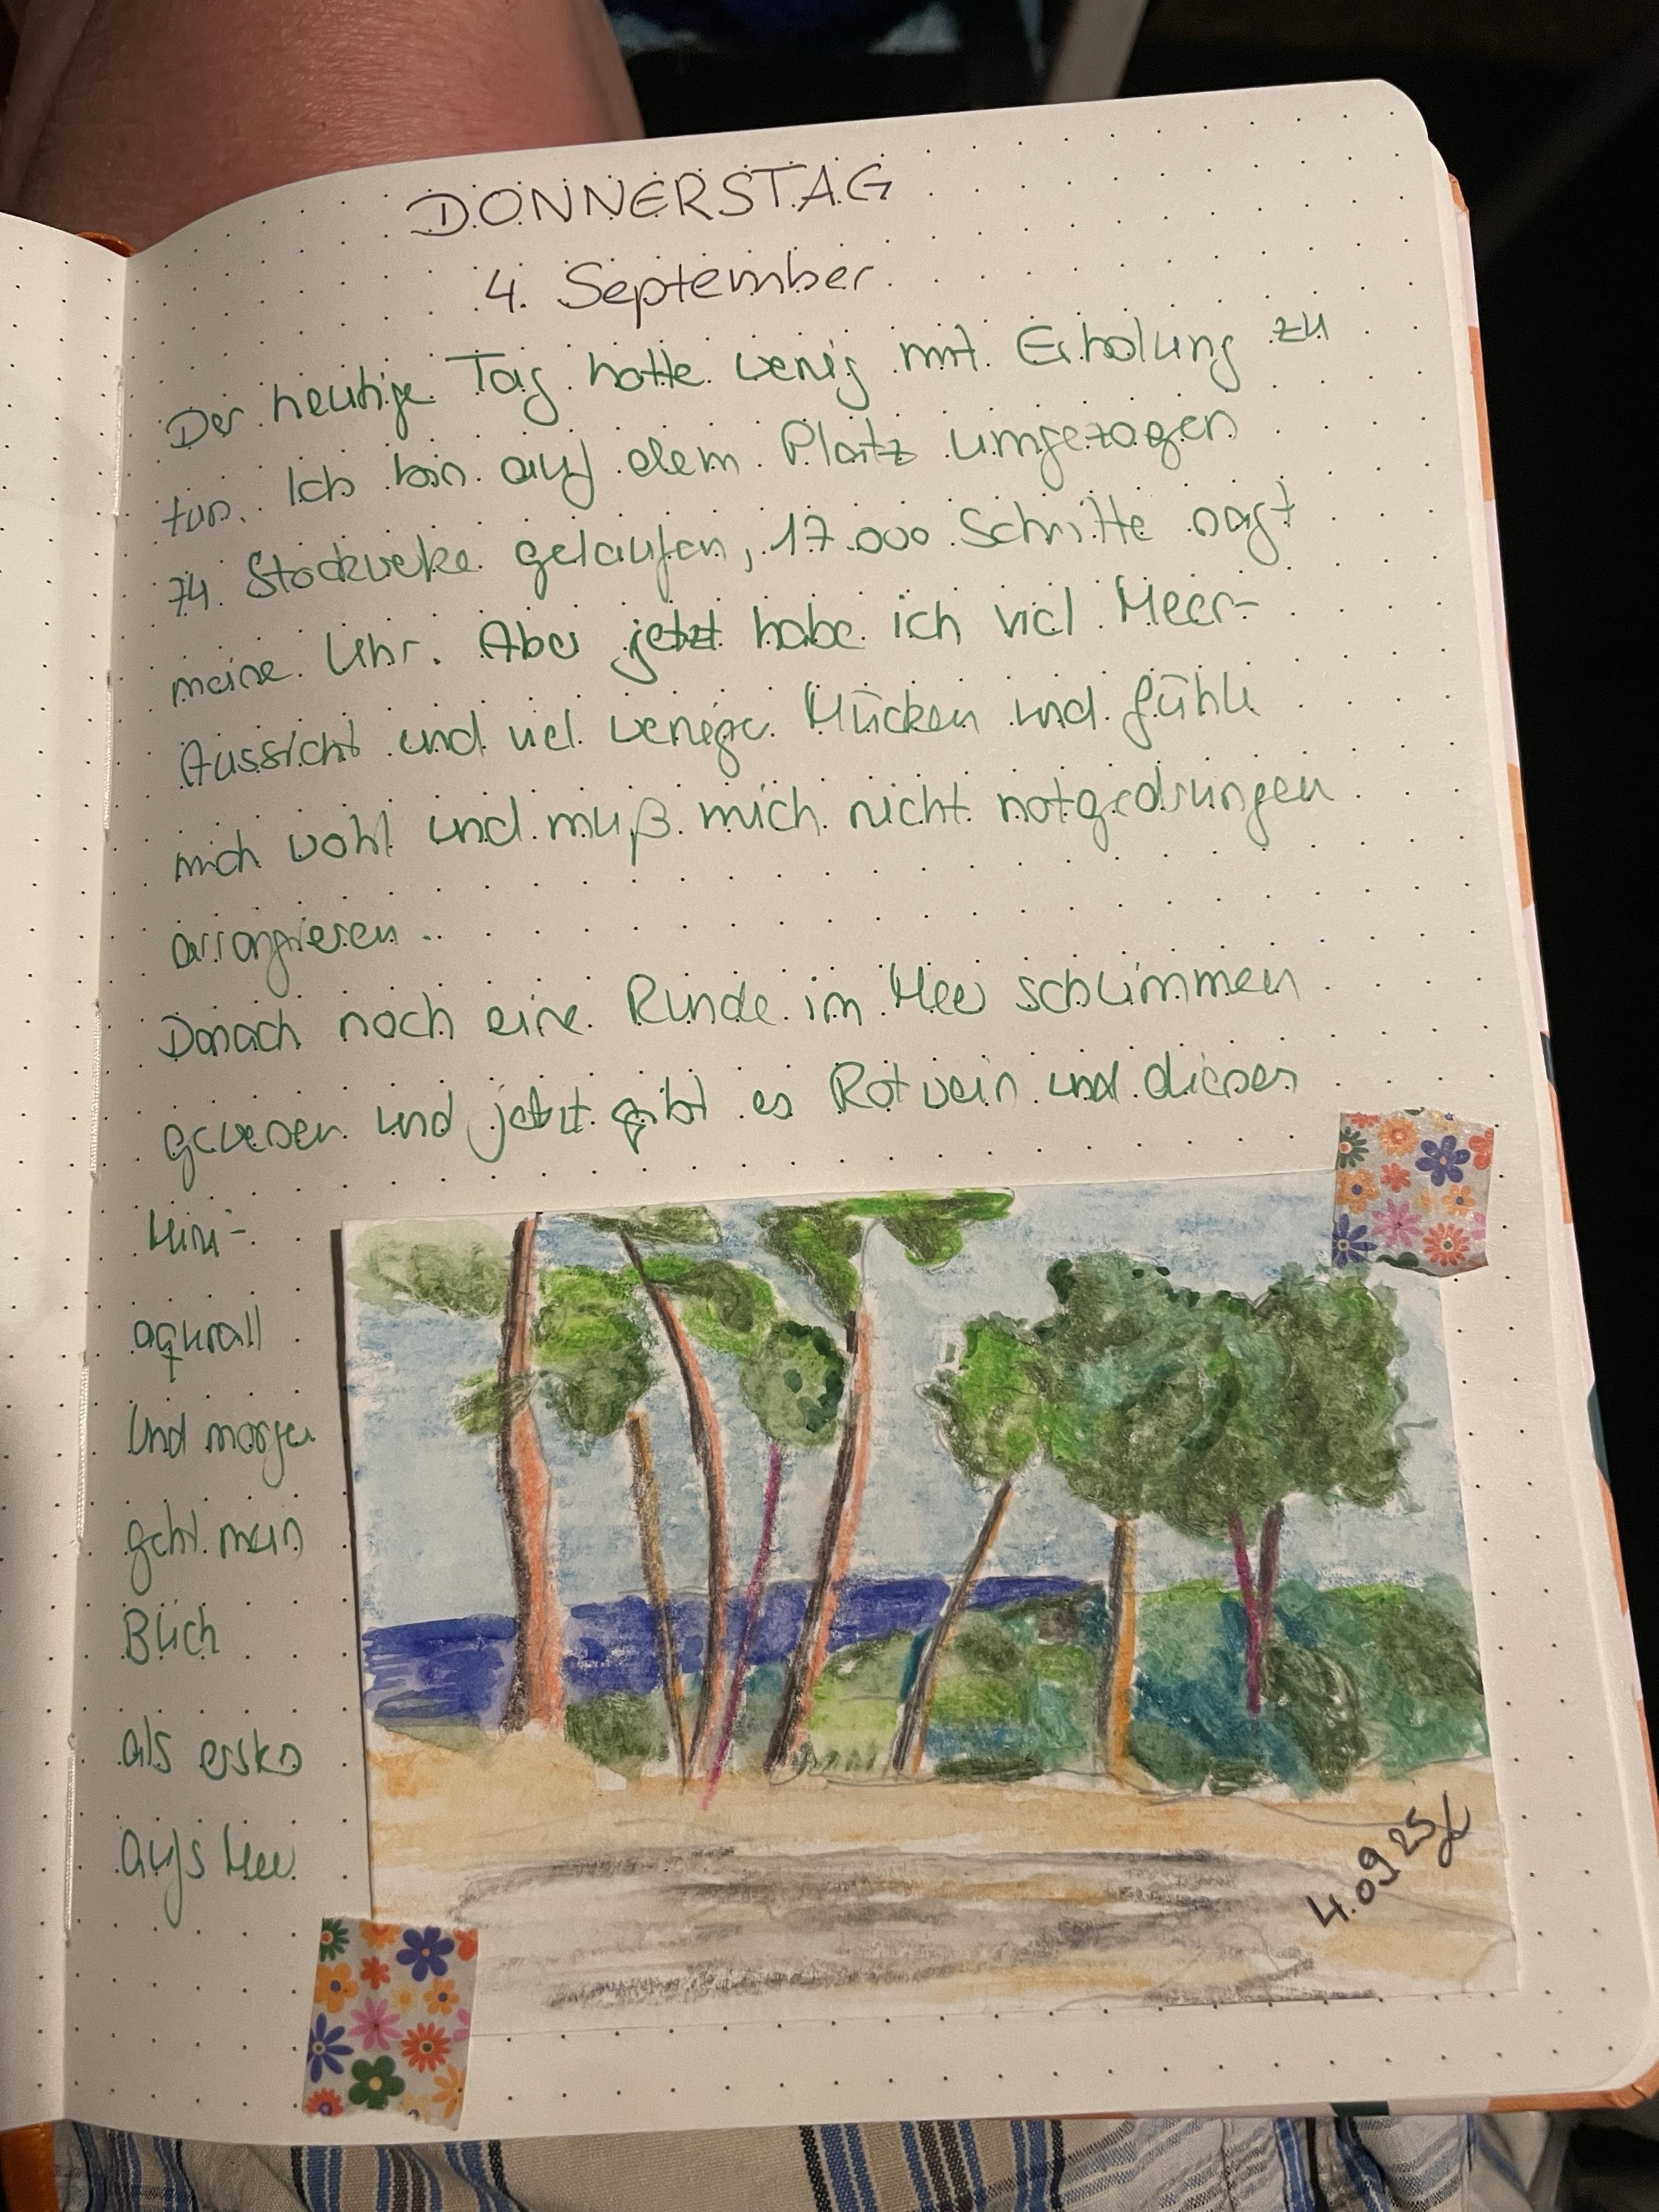 DONNERSTAG
4. September
Der heutige Tag hatte wenig mit Erholung zu
tun. Ich bin auf dem Platz umgezogen
74 Stockwerke gelaufen, 17.000 Schritte sagt
meine Uhr. Aber jetzt habe ich viel Meer-
Aussicht und viel weniger Mücken und fühle
mich wohl und muß mich nicht notgedrungen
arrangieren..
Danach noch eine Runde im Meer schwimmen
gewesen und jetzt gibt es Rotwein und dieses
Mini-
aqurall
Und morgen
geht mein
Blick
als erstes
aufs Meer
4.09 25